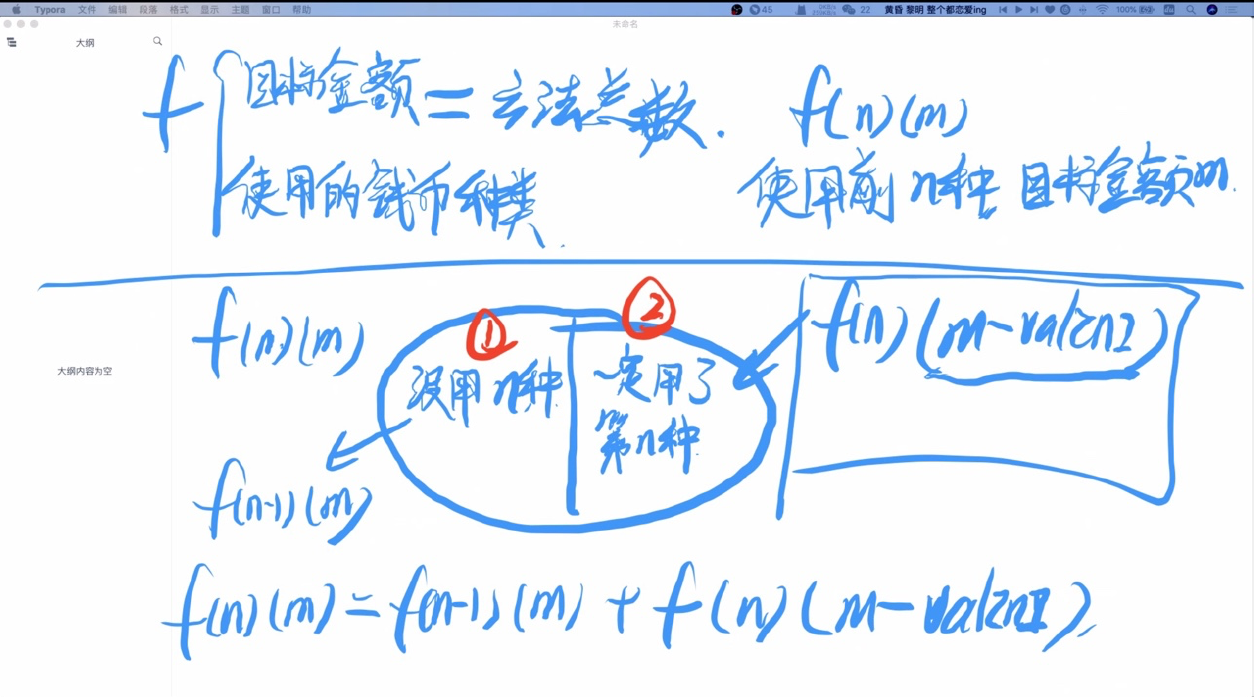 Typora 文件 编辑 段落 格式 显示 主题 窗口 帮助
45
22 黄昏 黎明 整个都恋爱ing
100%
未命名
大纲
大纲内容为空
f
目标金额 = 方法总数.
使用的钱币种类.
f(n)(m)
使用前n种 目标金额m.
f(n)(m)
① ②
没用n种 一定用了
第n种
f(n)(m-val[n])
f(n-1)(m)
f(n)(m)=f(n-1)(m)+f(n)(m-val[n]).